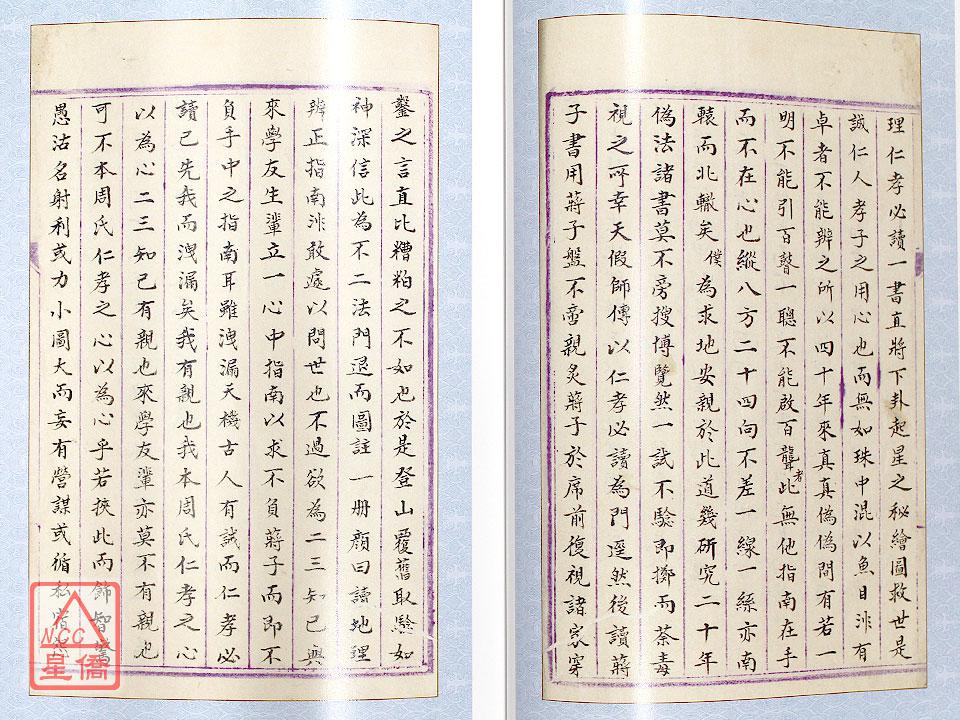 理仁孝必讀一書直將下卦起星之秘繪圖救世是
誠仁人孝子之用心也而無如珠中混以魚目非有
卓者不能辨之所以四十年來真真偽偽間有若一
明不能引百瞽一聰不能啟百聾者此無他指南在手
而不在心也縱八方二十四向不差一線一絲亦南
轅而北轍矣僕為求地安親於此道幾研究二十年
偽法諸書莫不旁搜博覽然一試不驗即擲而荼毒
視之吁幸天假師傳以仁孝必讀為門逕然後讀蔣
子書用蔣子盤不啻親炙蔣子於席前復視諸家穿
鑿之言直比糟粕之不如也於是登山覆舊取驗如
神深信此為不二法門退而圖註一册顏曰讀地理
辨正指南非敢遽以問世也不過欲為二三知已與
來學友生輩立一心中指南以求不負蔣子而即不
負手中之指南耳雖洩漏天機古人有誡而仁孝必
讀已先我而洩漏矣我有親也我本周氏仁孝之心
以為心二三知已有親也來學友輩亦莫不有親也
可不本周氏仁孝之心以為心乎若挾此而飾智驚
愚沽名射利或力小圖大而妄有營謀或循私
NCC
星僑